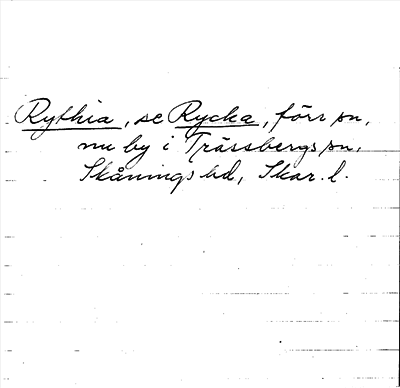 Rythia, se Rycka, förr sn,
nu by i Trässbergs sn,
Skånings hd, Skar. l.